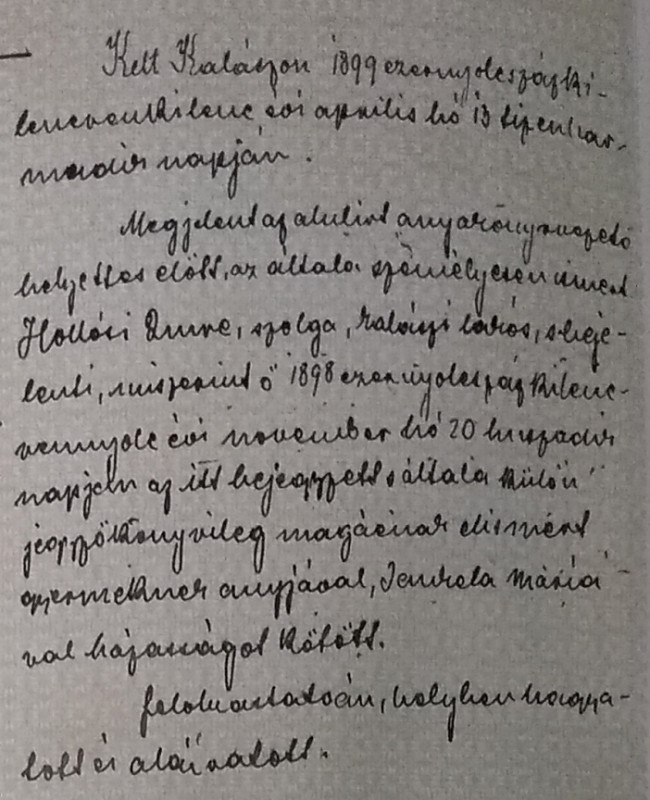 Kelt Kalászon 1899 ezernyolcszáz ki-
lencvenkilenc évi április hó 13 tizenhar-
madik napján.
Megjelent az alulirt anyakönyvvezető
helyettes előtt, az általa személyesen ismert
Hollósi Imre, szolga, kalászi lakós, s beje-
lenti, miszerint ő 1898 ezernyolcszáz kilenc-
vennyolc évi november hó 20 huszadik
napján az itt bejegyzett s általa külön
jegyzőkönyvileg magáénak elismert
gyermeknek anyjával, Mária
val házasságot kötött.
felolvastatván, helyben hagya-
tott és aláiratott.